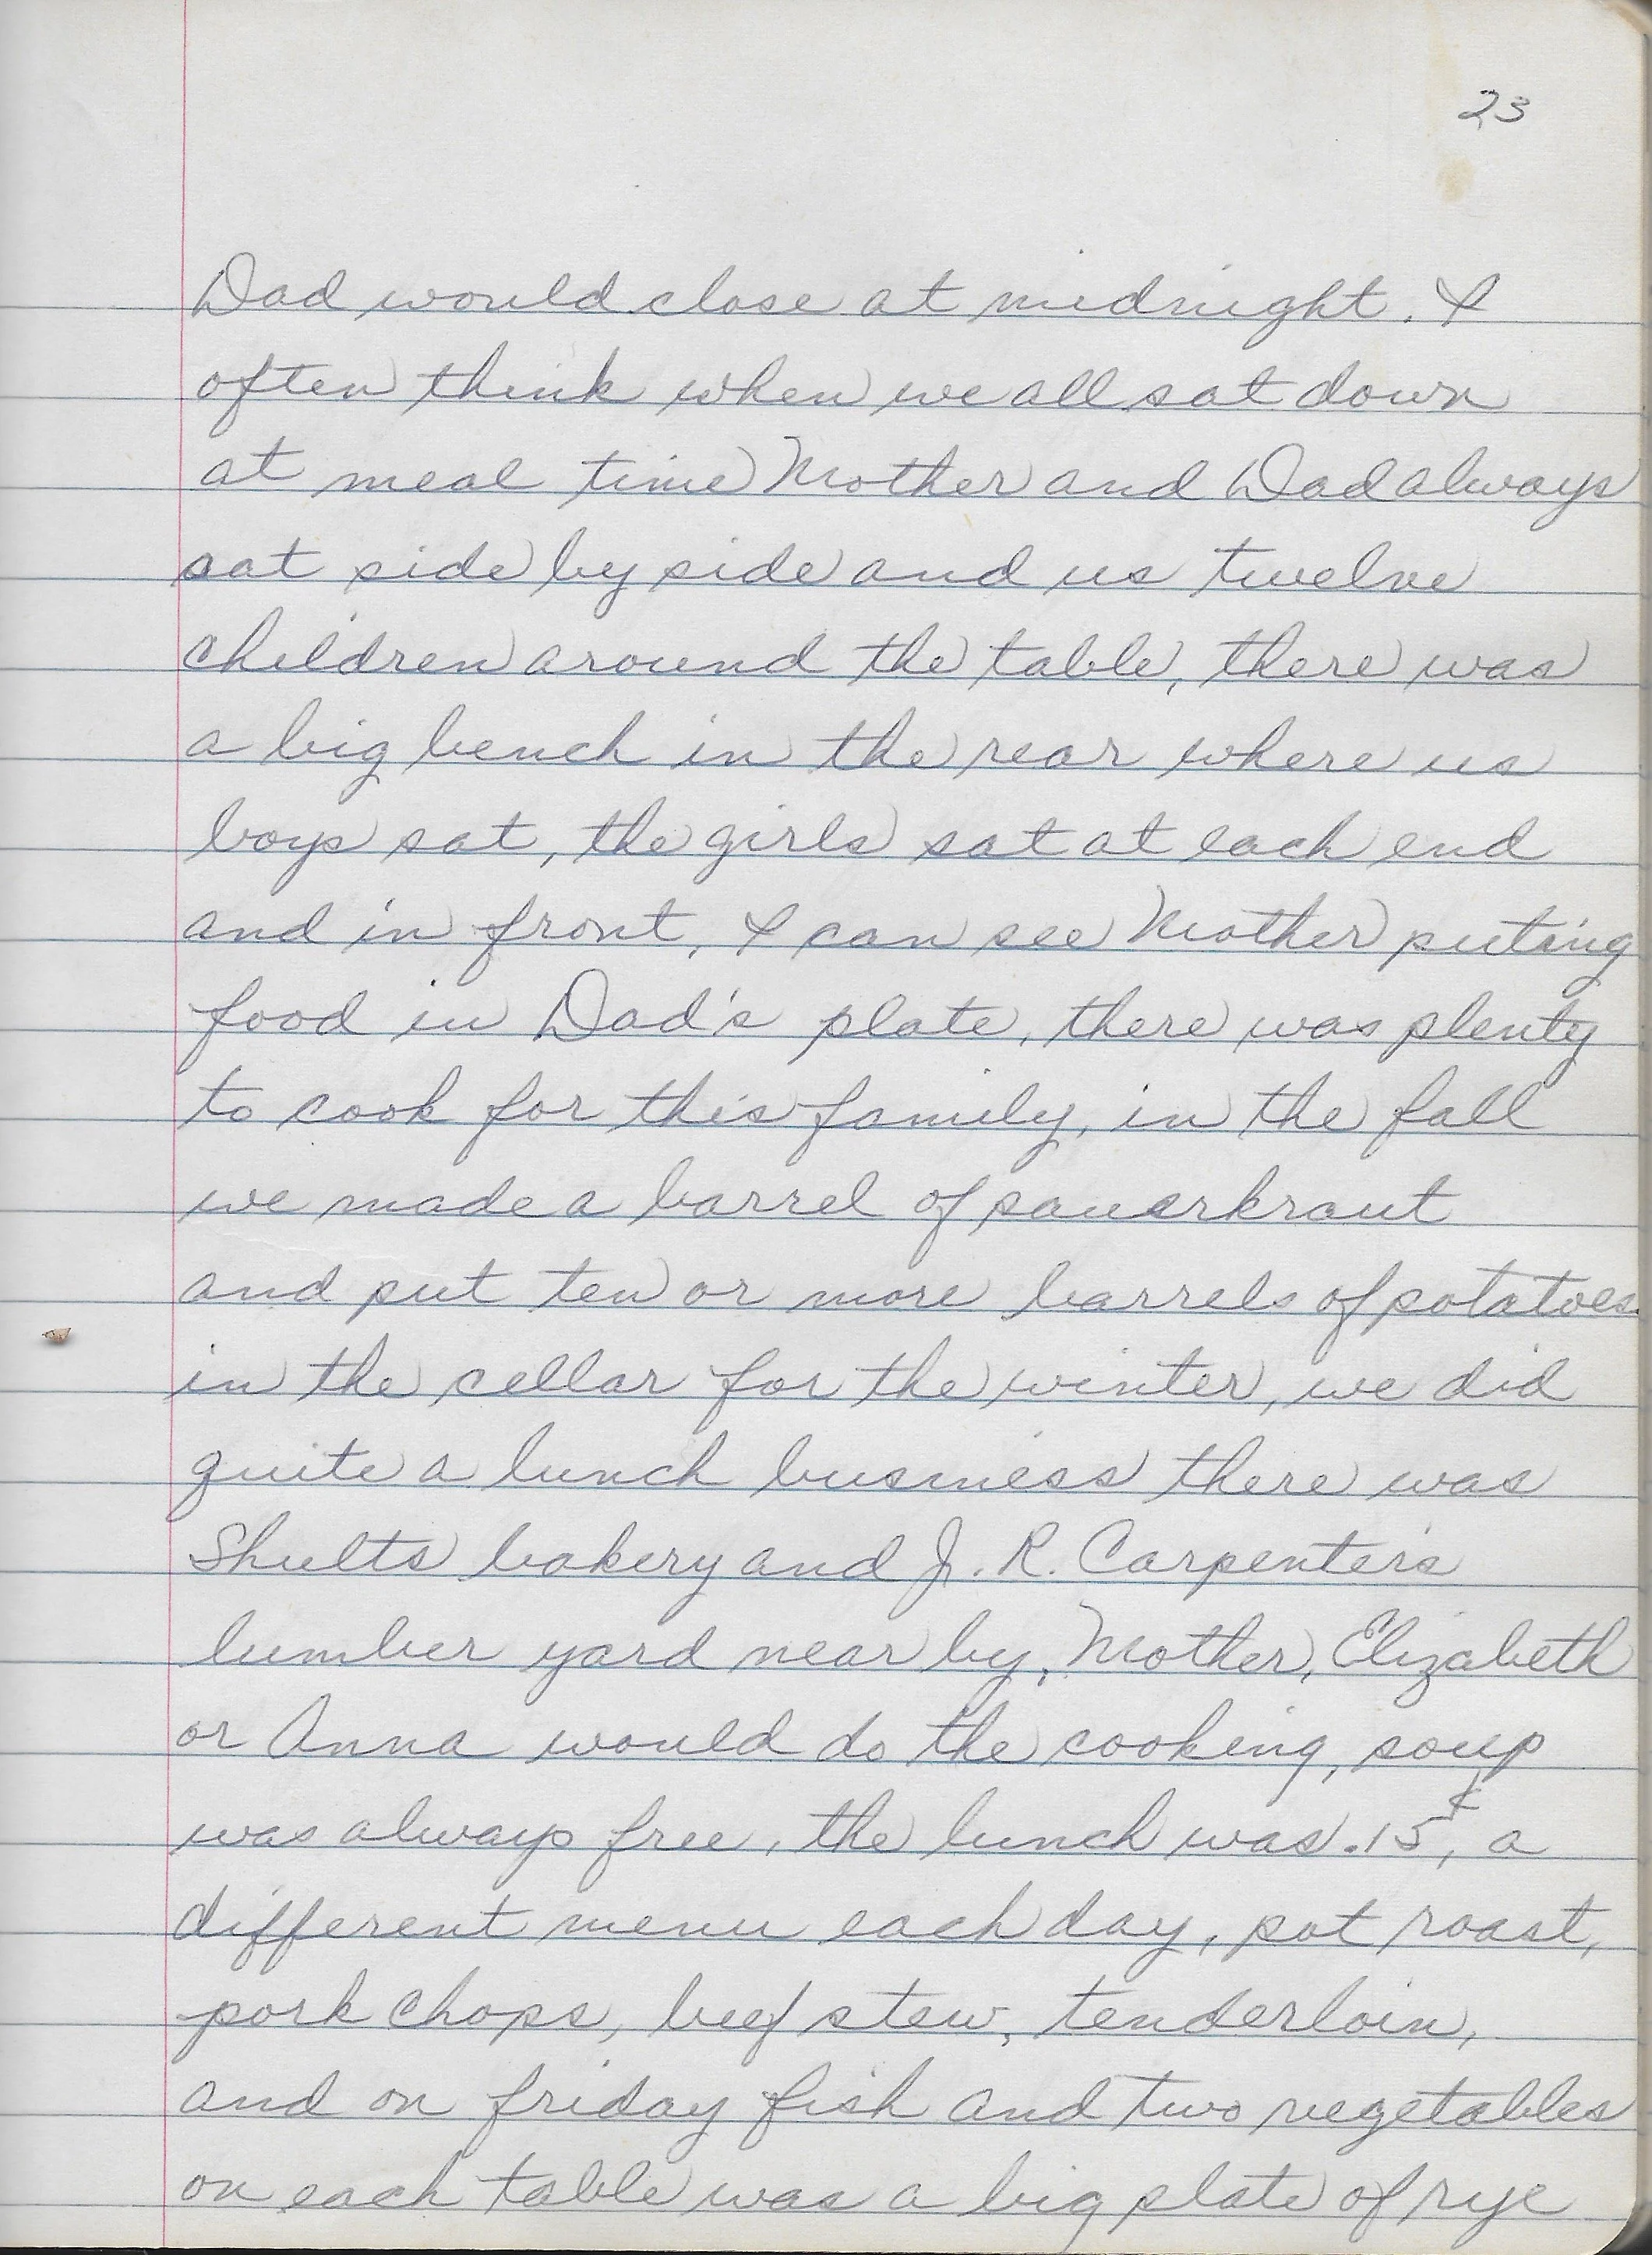 23
Dad would close at midnight. I
often think when we all sat down
at meal time Mother and Dad always
sat side by side and us twelve
children around the table, there was
a big bench in the rear where us
boys sat, the girls sat at each end
and in front, I can see Mother puting
food in Dad's plate, there was plenty
to cook for this family, in the fall
we made a barrel of sauerkraut
and put ten or more barrels of potatoes
in the cellar for the winter, we did
quite a lunch business there was
Shults bakery and J. R. Carpenters
lumber yard near by, Mother, Elizabeth
or Anna would do the cooking, soup
was always free, the lunch was .15¢, a
different menu each day, pot roast,
pork chops, beef stew, tenderloin,
and on friday fish and two vegetables
on each table was a big plate of rye